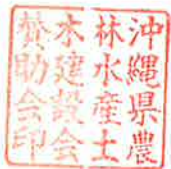 沖縄県農
林水産土
木建設会
賛助会印